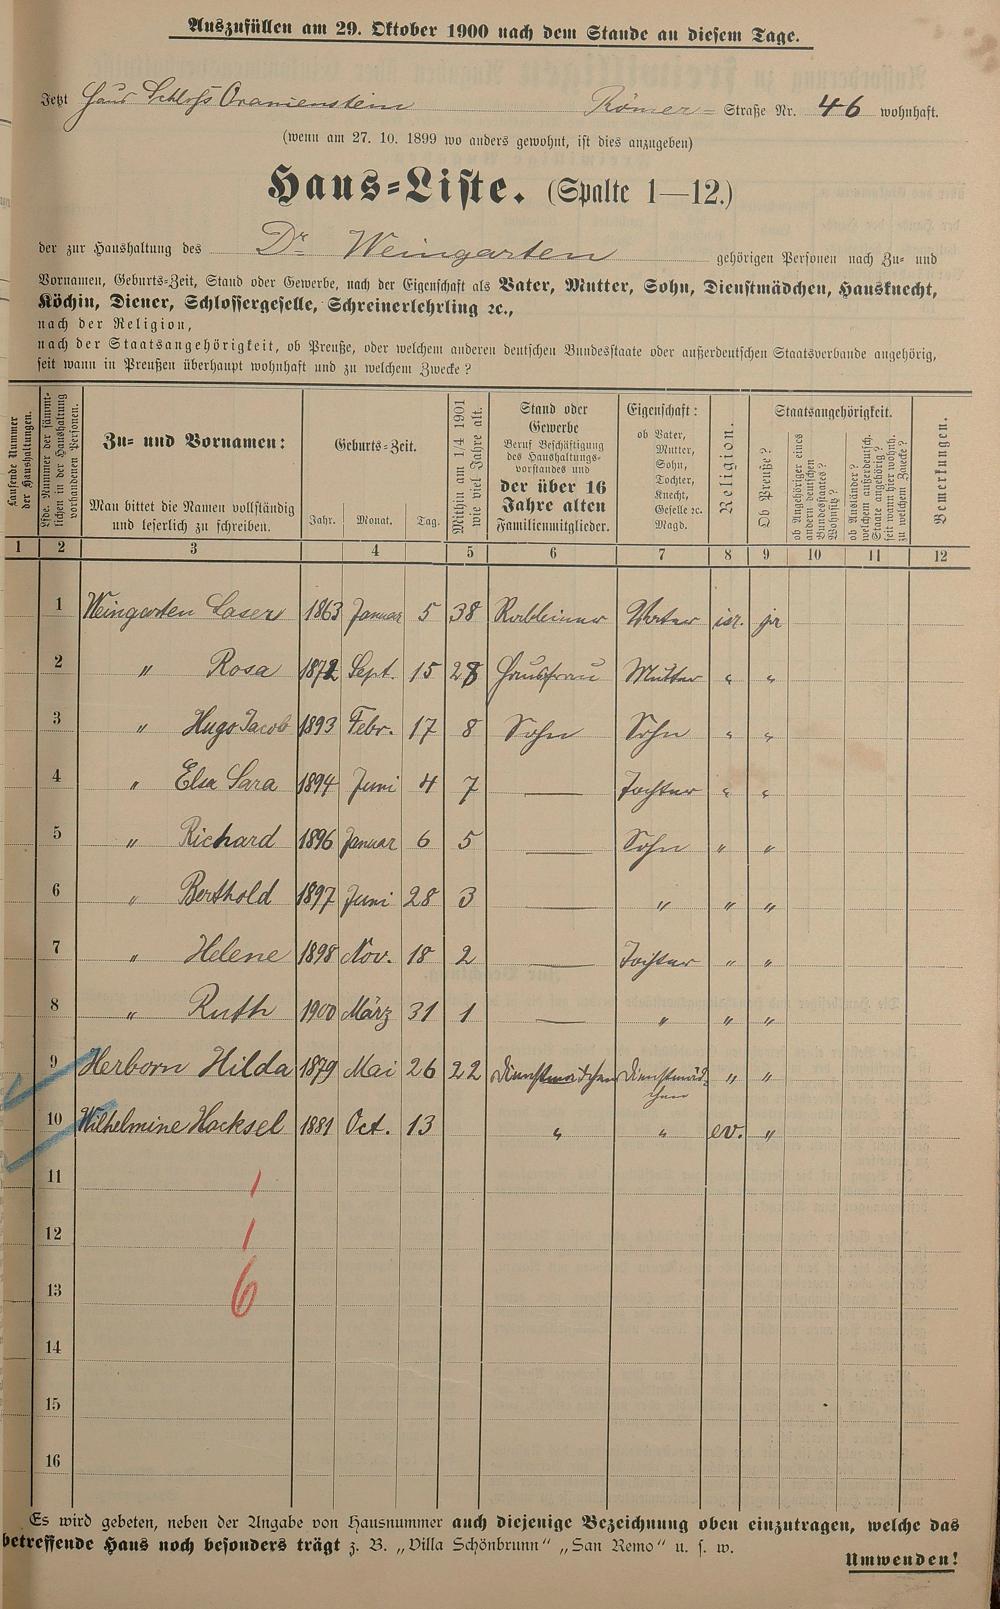 Auszufüllen am 29. Oktober 1900 nach dem Stande an diesem Tage.
Jetzt Haus Schloss Oranienstein Römer= Straße Nr. 46 wohnhaft.
(wenn am 27. 10. 1899 wo anders gewohnt, ist dies anzugeben)
Haus=Liste. (Spalte 1—12.)
der zur Haushaltung des Dr Weingarten gehörigen Personen nach Zu- und
Vornamen, Geburts-Zeit, Stand oder Gewerbe, nach der Eigenschaft als Vater, Mutter, Sohn, Dienstmädchen, Hausknecht,
Köchin, Diener, Schlossergeselle, Schreinerlehrling ꝛc.,
nach der Religion,
nach der Staatsangehörigkeit, ob Preuße, oder welchem anderen deutschen Bundesstaate oder außerdeutschen Staatsverbande angehörig,
seit wann in Preußen überhaupt wohnhaft und zu welchem Zwecke?
Laufende Nummer der Haushaltungen.
Lfde. Nummer der sämmtlichen in der Haushaltung vorhandenen Personen.
Zu- und Vornamen:
Man bittet die Namen vollständig
und leserlich zu schreiben.
Geburts-Zeit.
Jahr. Monat. Tag.
Mithin am 1/4 1901 wie viel Jahre alt.
Stand oder
Gewerbe
Beruf Beschäftigung
des Haushaltungs-
vorstandes und
der über 16
Jahre alten
Familienmitglieder.
Eigenschaft:
ob Vater,
Mutter,
Sohn,
Tochter,
Knecht,
Geselle ꝛc.
Magd.
Religion.
Staatsangehörigkeit.
Ob Preuße?
ob Angehöriger eines andern deutschen Bundesstaates? Wohnsitz?
ob Ausländer? welchem außerdeutsch. Staate angehörig? seit wann hier wohnh. zu welchem Zwecke?
Bemerkungen.
1 2 3 4 5 6 7 8 9 10 11 12
1 Weingarten Laser 1863 Januar 5 38 Rabbiner Vater isr. ja
2 " Rosa 1872 Sept. 15 28 Hausfrau Mutter " "
3 " Hugo Jacob 1893 Febr. 17 8 Sohn Sohn " "
4 " Elsa Sara 1894 Juni 4 7 — Tochter " "
5 " Richard 1896 Januar 6 5 — Sohn " "
6 " Berthold 1897 Juni 28 3 — " " "
7 " Helene 1898 Nov. 18 2 — Tochter " "
8 " Ruth 1900 März 31 1 — " " "
9 Herborn Hilda 1879 Mai 26 22 Dienstmädchen Dienstmäd-
chen " "
10 Wilhelmine Hacksel 1881 Oct. 13 " " ev. "
11 1
12 1
13 6
14
15
16
Es wird gebeten, neben der Angabe von Hausnummer auch diejenige Bezeichnung oben einzutragen, welche das
betreffende Haus noch besonders trägt z. B. „Villa Schönbrunn" „San Remo" u. s. w.
Umwenden!